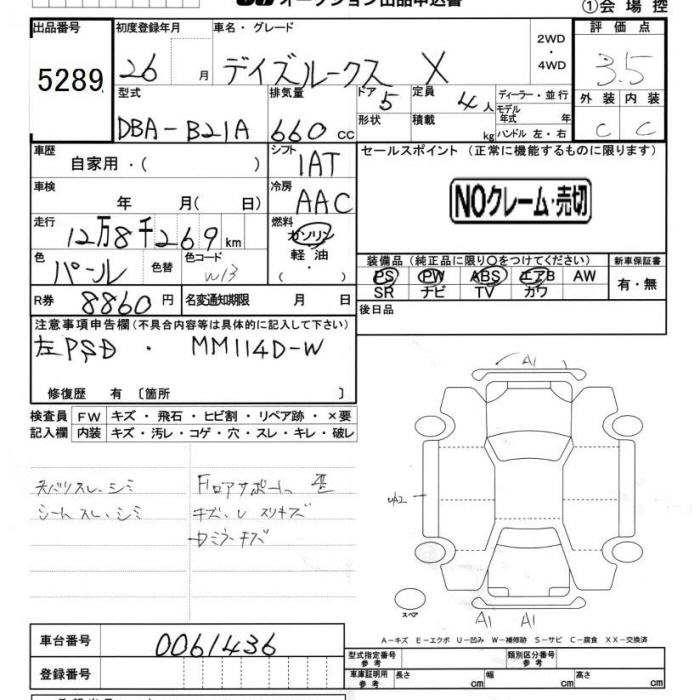 オークション出品申込書
①会場控
出品番号 初度登録年月 車名・グレード 2WD・4WD 評価点
5289 26 月 デイズルークス X 3.5
型式 排気量 ドア 5 定員 4人 ディーラー・並行 外装 内装
DBA-B21A 660 cc 形状 積載 kg モデル年式 年 C C
ハンドル 左・右
車歴 シフト セールスポイント (正常に機能するものに限ります)
自家用・( ) IAT
車検 年 月( 日) 冷房 AAC NOクレーム・売切
走行 12万8千269 km 燃料 ガソリン 軽油
色 パール 色替 色コード W13
装備品 (純正品に限り○をつけてください) 新車保証書
PS PW ABS エアB AW 有・無
SR ナビ TV カワ
R券 8860円 名変通知期限 月 日 後日品
注意事項申告欄(不具合内容等は具体的に記入して下さい)
左PSD ・ MM114D-W
修復歴 有 〔箇所 〕
検査員 FW キズ・飛石・ヒビ割・リペア跡・×要
記入欄 内装 キズ・汚レ・コゲ・穴・スレ・キレ・破レ
シートスレ、シミ
A1
U2
スペア
A1 A1
A-キズ E-エクボ U-凹み W-補修跡 S-サビ C-腐食 XX-交換済
車台番号 0061436
登録番号
型式指定番号 参考 類別区分番号 参考
車庫証明用 参考 長さ cm 幅 cm 高さ cm